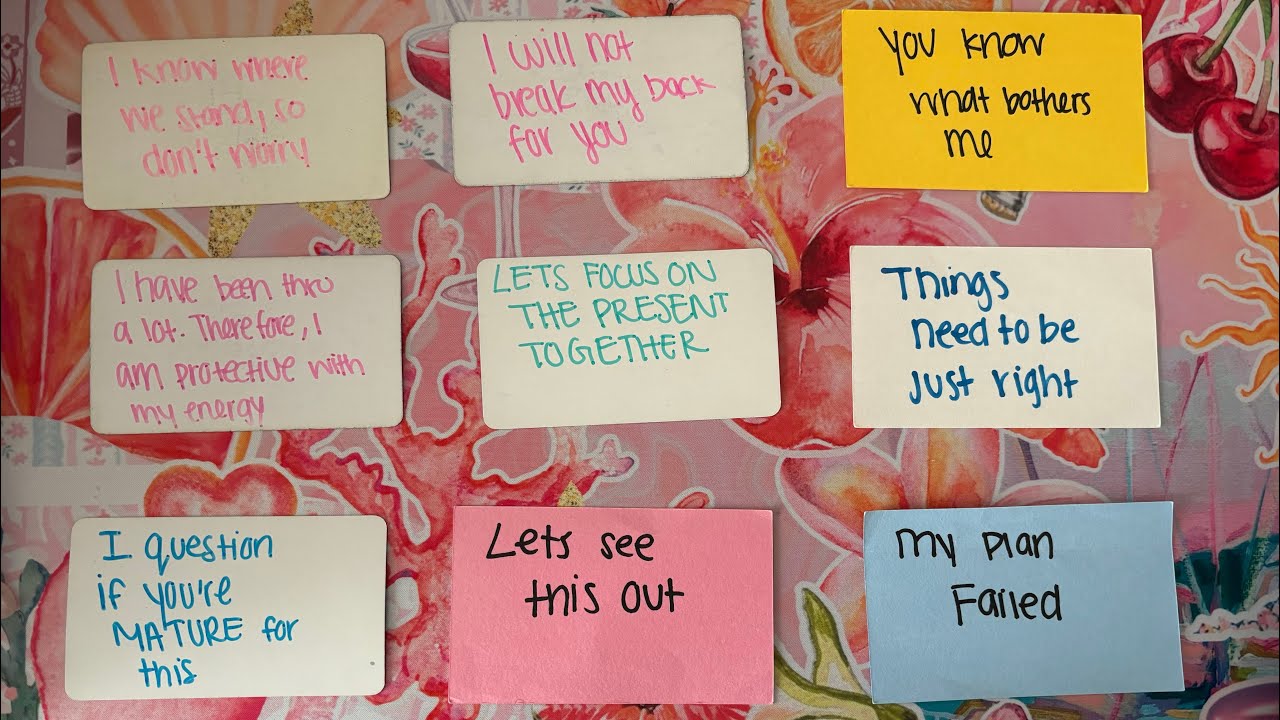 I know where
we stand, so
don't worry
I will not
break my back
for you
You know
what bothers
me
I have been thru
a lot. Therefore, I
am protective with
my energy
LETS FOCUS ON
THE PRESENT
TOGETHER
Things
need to be
just right
I question
if you're
MATURE for
this
Lets see
this out
My plan
Failed